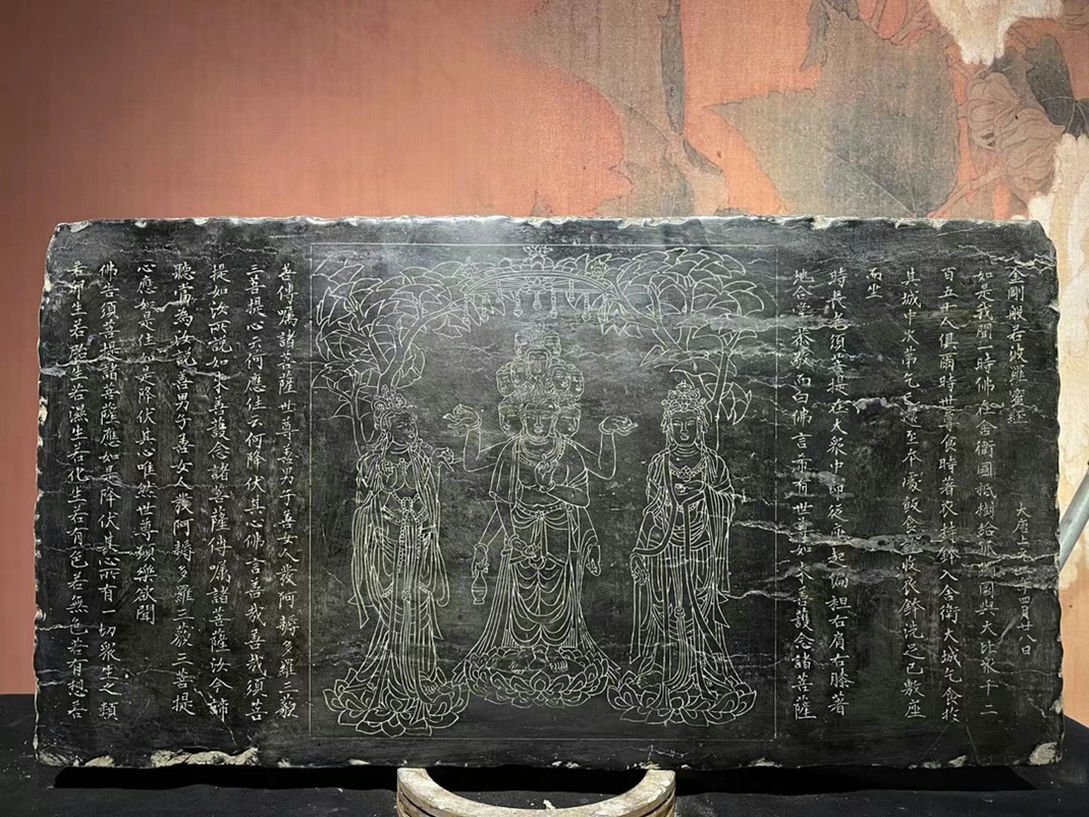 金剛般若波羅蜜經 大唐上 年四月廿八日
如是我聞一時佛在舍衛國祇樹給孤獨園與大比丘千二
百五十人俱爾時世尊食時著衣持鉢入舍衛大城乞食於
其城中次第乞已還至本處飯食訖收衣鉢洗足已敷座
而坐
時長老須菩提在大衆中即從座起偏袒右肩右膝著
地合掌恭敬而白佛言希有世尊如来善護念諸菩薩
善傅囑諸菩薩世尊善男子善女人發阿耨多羅三藐
三菩提心云何應住云何降伏其心佛言善哉善哉須菩
提如汝所說如来善護念諸菩薩傅囑諸菩薩汝今諦
聽當為汝說善男子善女人發阿耨多羅三藐三菩提
心應如是住如是降伏其心唯然世尊願樂欲聞
佛告須菩提諸菩薩應如是降伏其心所有一切衆生之類
若卵生若胎生若濕生若化生若有色若無色若有想若